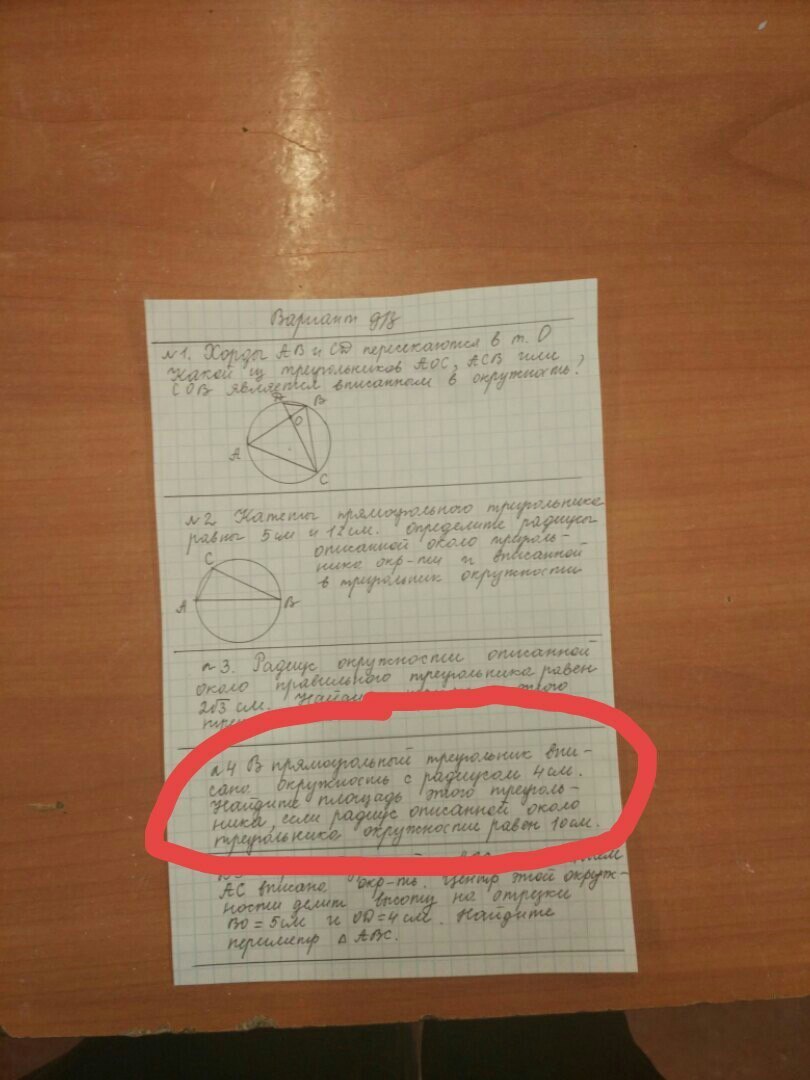 Вариант
№1. Хорды AB и CD пересекаются в т. O
Какой из треугольников AOC, ACB или
COB является вписанным в окружность?
B
O
A
C
№2 Катеты прямоугольного треугольника
равны 5см и 12см. Определите радиусы
описанной около треуголь-
ника окр-ти и вписанной
в треугольник окружности
C
A
B
№3. Радиус окружности описанной
около правильного треугольника равен
2√3 см.
№4 В прямоугольный треугольник впи-
сана окружность с радиусом 4см.
Найдите площадь этого треуголь-
ника, если радиус описанной около
треугольника окружности равен 10см.
AC вписана окр-ть. Центр этой окруж-
ности делит высоту на отрезки
BO = 5см и OD = 4см. Найдите
периметр △ ABC.